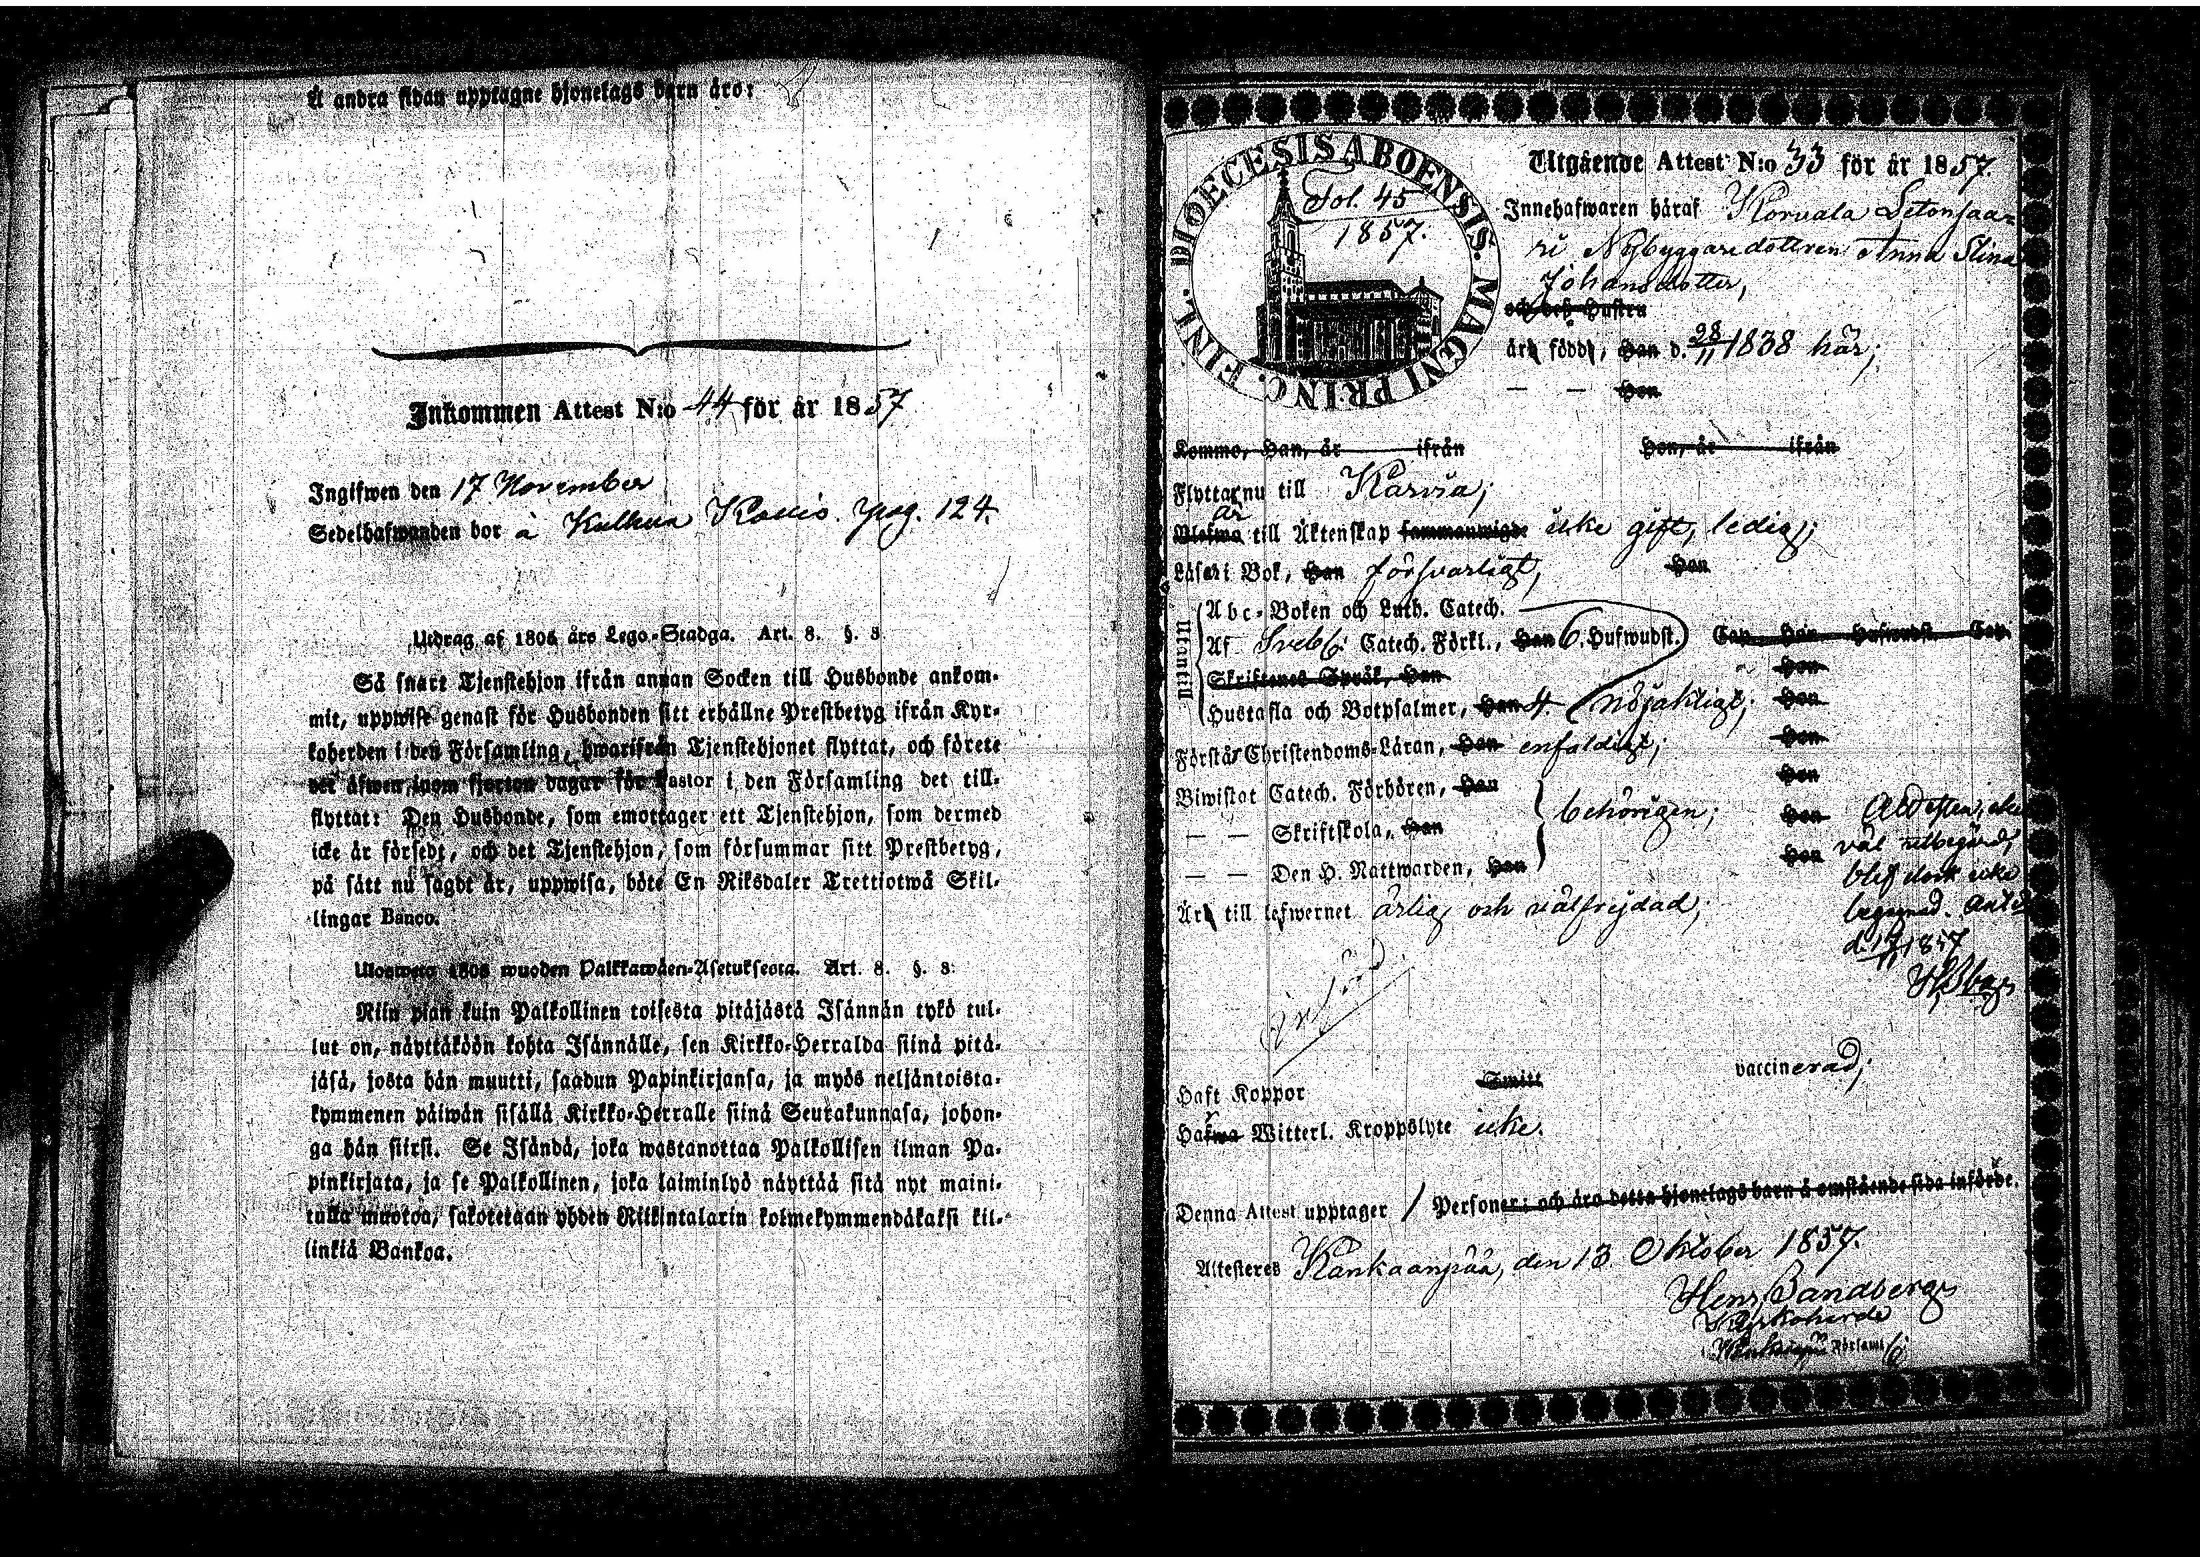 Å andra sidan upptagne hjonelags barn äro:
Inkommen Attest N:o 44 för år 1857
Ingifwen den 17 November
Sedelhafwanden bor å Kulhua pag. 124.
Utdrag af 1805 års Lego-Stadga. Art. 8. §. 8
Så snart Tjenstehjon ifrån annan Socken till Husbonde ankom-
mit, uppwise genast för Husbonden sitt erhållne Prestbetyg ifrån Kyr-
koherden i den Församling, hwarifrån Tjenstehjonet flyttat, och förete
det äfwen, inom fjorton dagar för Pastor i den Församling det till-
flyttat: Den Husbonde, som emottager ett Tjenstehjon, som dermed
icke är försedt, och det Tjenstehjon, som försummar sitt Prestbetyg,
på sätt nu sagdt är, uppwisa, böte En Riksdaler Trettiotwå Skil-
lingar Banco.
Ulosweto 1805 wuoden Palkkawäen-Asetuksesta. Art. 8. §. 8:
Niin pian kuin Palkollinen toisesta pitäjästä Isännän tykö tul-
lut on, näyttäköön kohta Isännälle, sen Kirkko-Herralda siinä pitä-
jäsä, josta hän muutti, saadun Papinkirjansa, ja myös neljäntoista-
kymmenen päiwän sisällä Kirkko-Herralle siinä Seurakunnasa, johon-
ga hän siirsi. Se Isändä, joka wastanottaa Palkollisen ilman Pa-
pinkirjata, ja se Palkollinen, joka laiminlyö näyttää sitä nyt maini-
tulla muotoa, sakotetaan yhden Riikintalarin kolmekymmendäkaksi kil-
linkiä Bankoa.
DIOECESIS ABOENSIS. MAGNI PRINC. FINL.
Fol. 45
1857.
Utgående Attest N:o 33 för år 1857.
Innehafwaren häraf Korvala Letonsaa-
ri Nybyggaredottren Anna Stina
Johansdotter,
och dess Hustru
äro född, Han d. 28/11 1838 här;
— — Hon
Kommo, Han, år ifrån Hon, år ifrån
Flyttar nu till Karvia;
är
Blefwo till Äktenskap sammanwigde icke gift, ledig;
Läser i Bok, Han försvarligt, Hon
Utantill
Abc-Boken och Luth. Catech.
Af Svebb: Catech. Förkl., Han 6. Hufwudst. Cap. Hon Hufwudst. Cap.
Skriftenes Språk, Han Hon
Hustafla och Botpsalmer, Han 4. nöjaktigt; Hon
Förstår Christendoms-Läran, Han enfaldigt; Hon
Biwistat Catech. Förhören, Han Hon
— — Skriftskola, Han behörigen; Hon
— — Den H. Nattwarden, Han Hon
Är till lefwernet ärlig och välfrejdad;
Attesten, ehu
väl utbegärd,
blef dock icke
begagnad.
1857
Haft Koppor Smitt vaccinerad;
Hafwa Witterl. Kroppslyte icke.
Denna Attest upptager 1 Personer; och äro detta hjonelags barn å omstående sida införde.
Attesteres Kankaanpää, den 13 Oktober 1857.
Henr. Sandberg
Kyrkoherde
Kankaanpää Församl.